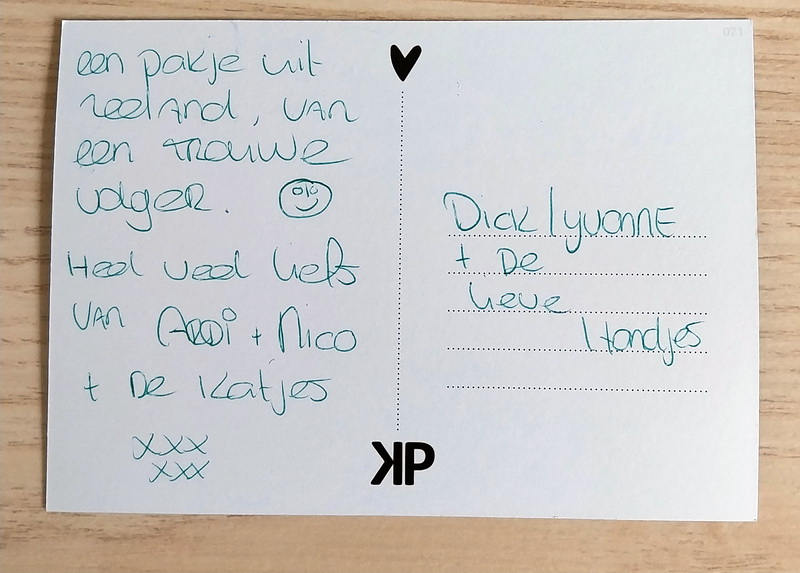 een pakje uit
zeeland, van
een trouwe
volger.
Heel veel liefs
van + Nico
+ De Katjes
xxx
xxx
021
Dick / yvonne
+ De
lieve
Hondjes
KP